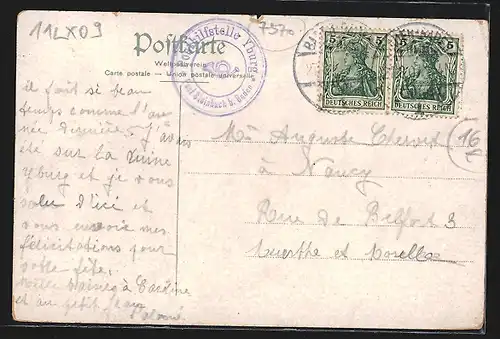 11 IX 09
7370
Postkarte
Weltpostverein
Carte postale — Union postale universelle
Posthilfstelle Yburg
Steinbach b. Baden
5 5
DEUTSCHES REICH
5 5
DEUTSCHES REICH
16
il fait si beau
temps comme l'an
née dernière
été sur la ruine
Yburg et je vous
salue d'ici et
vous envoie mes
félicitations pour
votre fête,
baisers à Caroline
et au petit Jean
Mr Auguste
à Nancy
Rue de Belfort 3
Meurthe et Moselle